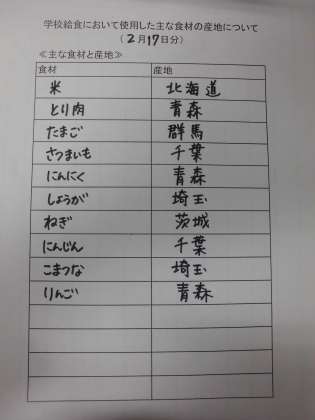 学校給食において使用した主な食材の産地について
（2月17日分）
≪主な食材と産地≫
食材 産地
米 北海道
とり肉 青森
たまご 群馬
さつまいも 千葉
にんにく 青森
しょうが 埼玉
ねぎ 茨城
にんじん 千葉
こまつな 埼玉
りんご 青森